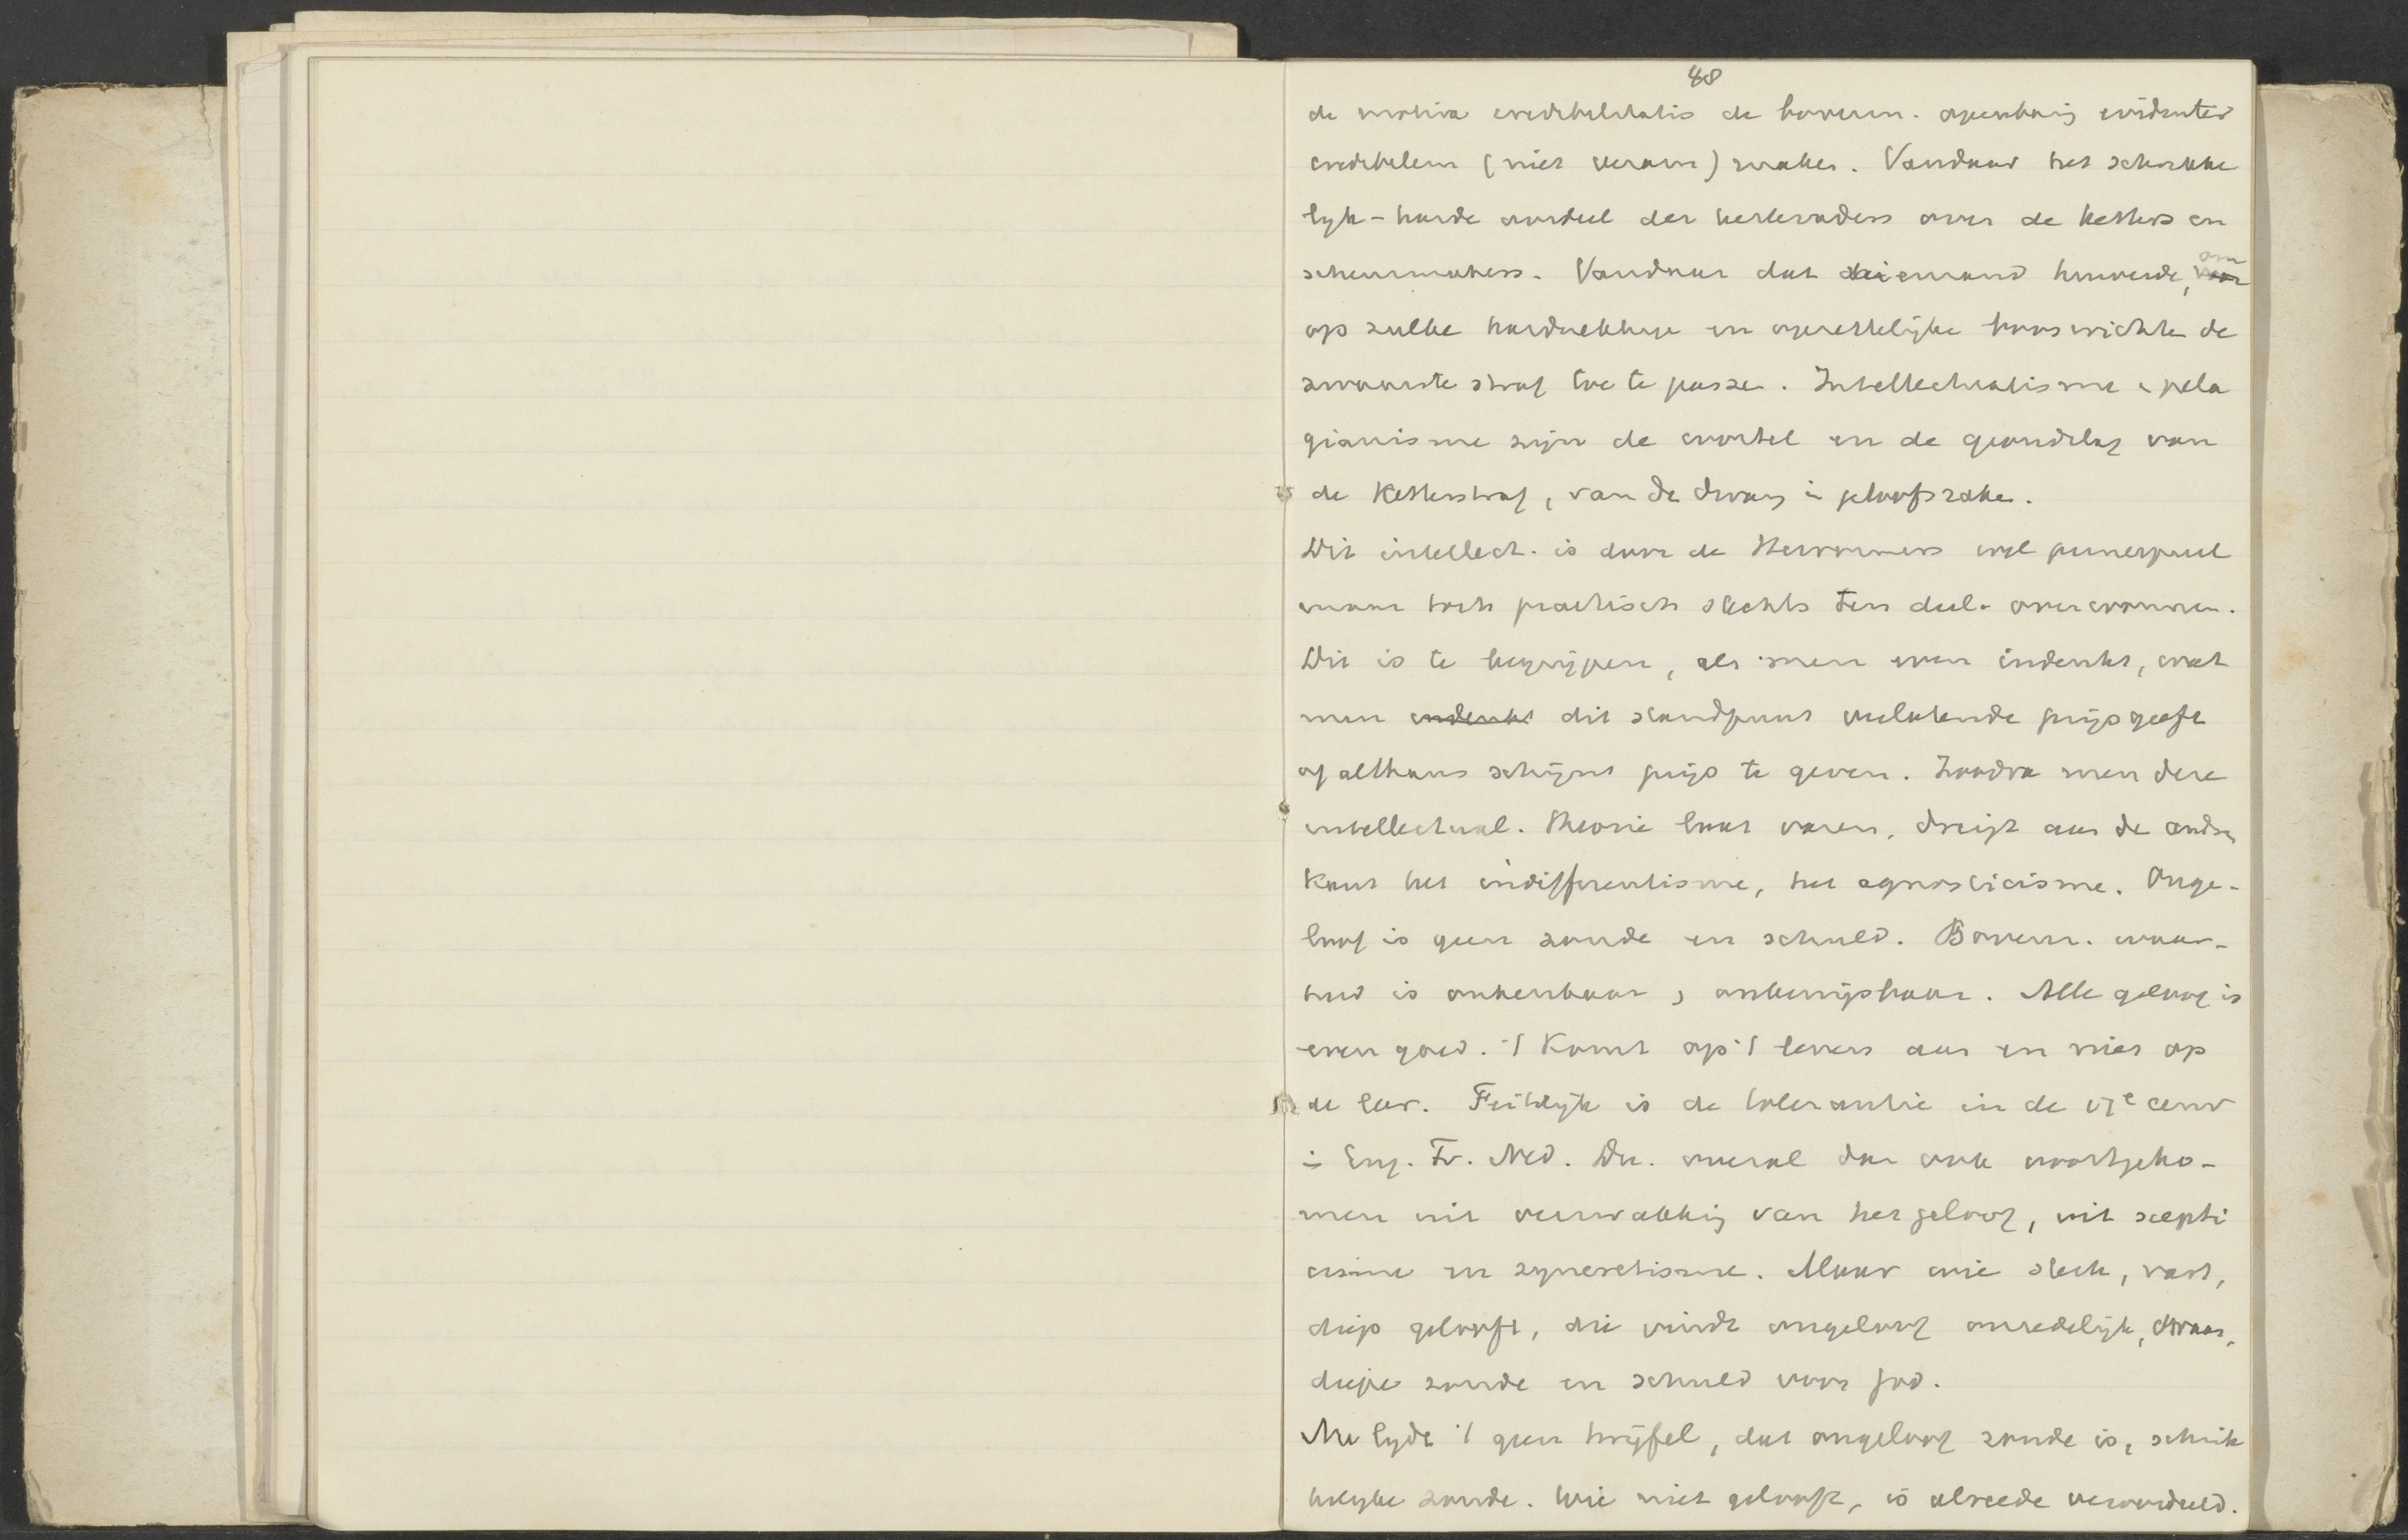 48
de motiva credibilitatis de bovenn. openbaring evidenter
credibilem (niet veram) maken. Vandaar het schrikke
lyk-harde oordeel der kerkvaders over de ketters en
scheurmakers. Vandaar dat niemand huiverde, om
op zulke hardnekkige en opzettelijke booswichten de
zwaarste straf toe te passen. Intellectualisme en pela
gianisme zijn de wortel en de grondslag van
de Ketterstraf, van de dwang in geloofszaken.
Dit intellect. is door de Hervormers wel principieel
maar toch practisch slechts ten deele overwonnen.
Dit is te begrijpen, als men even indenkt, wat
men indenkt dit standpunt verlatende prijsgeeft
of althans schijnt prijs te geven. Zoodra men deze
intellectual. theorie laat varen, dreigt aan de andere
kant het indifferentisme, het agnosticisme. Onge-
loof is geen zonde en schuld. Bovenn. waar-
heid is onkenbaar, onbewijsbaar. Alle geloof is
even goed. 't Komt op 't leven aan en niet op
de leer. Feitelijk is de tolerantie in de 17e eeuw
in Eng. Fr. Ned. Du. overal dan ook voortgeko-
men uit verzwakking van het geloof, uit scepti
cisme en syncretisme. Maar wie sterk, vast,
diep gelooft, die vindt ongeloof onredelijk, dwaas,
diepe zonde en schuld voor God.
Nu lydt 't geen twijfel, dat ongeloof zonde is, schrik
kelyke zonde. Wie niet gelooft, is alreede veroordeeld.